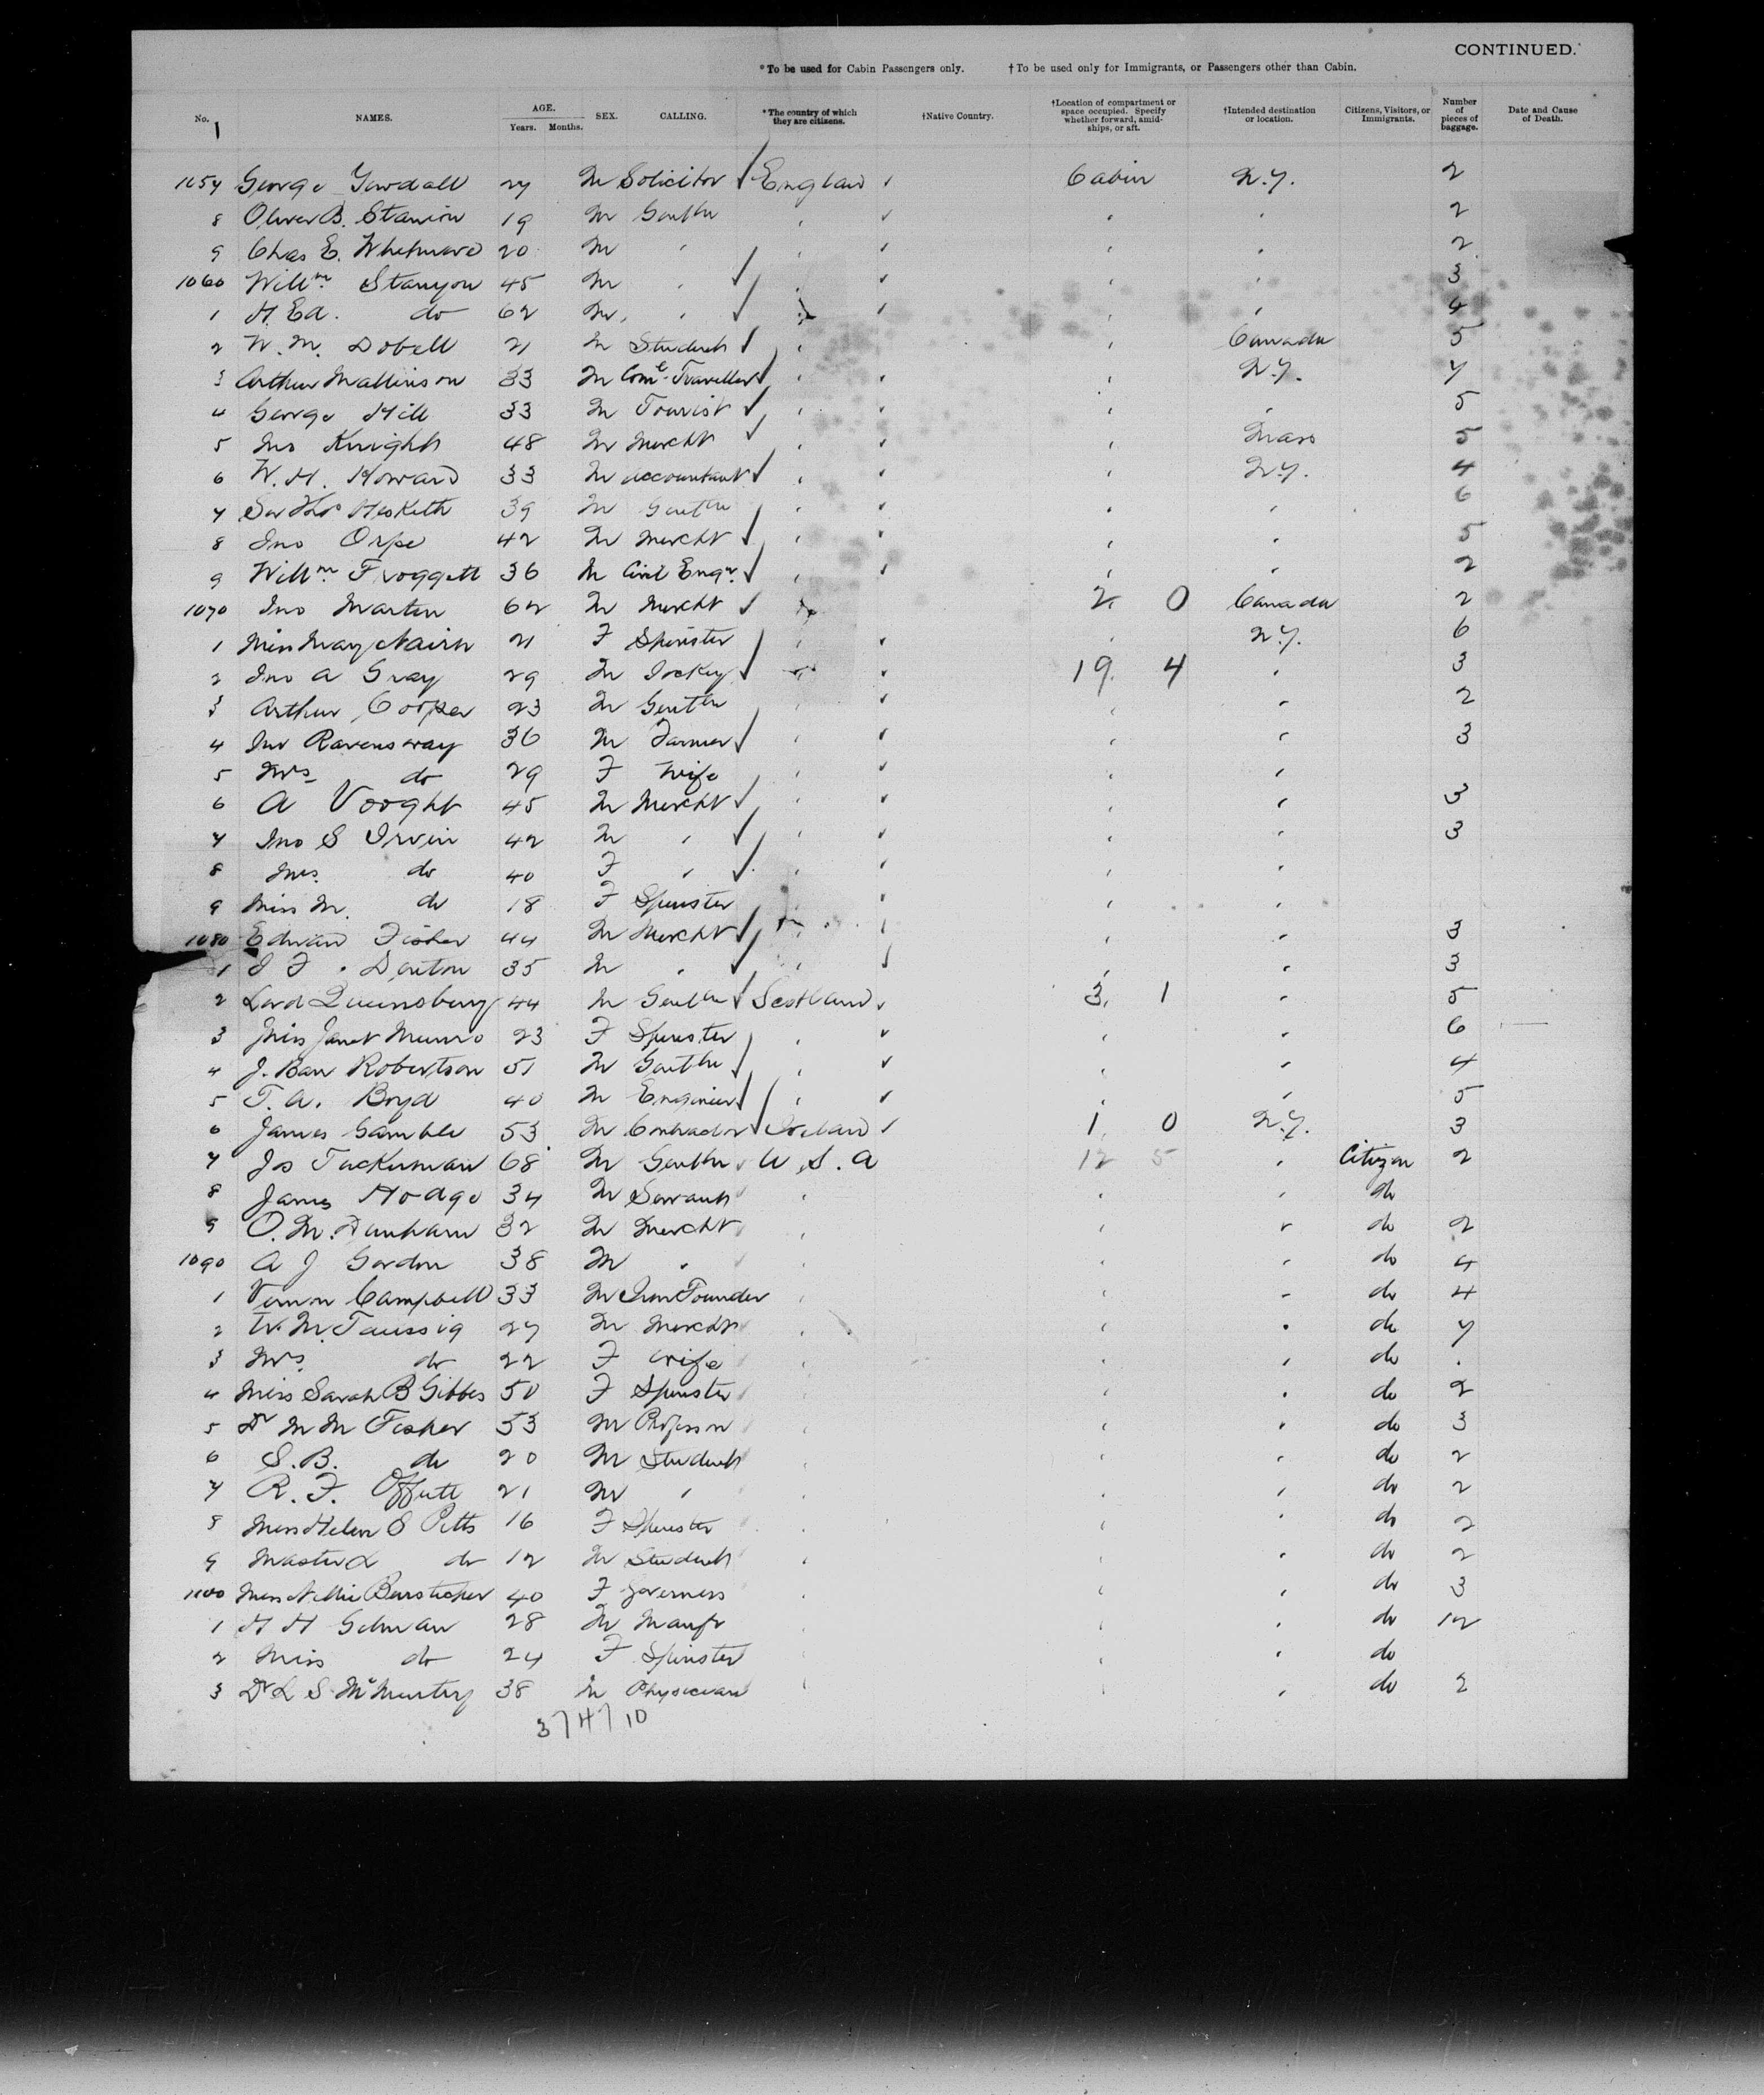 CONTINUED.
*To be used for Cabin Passengers only. †To be used only for Immigrants, or Passengers other than Cabin.
No. NAMES. AGE. Years. Months. SEX. CALLING. *The country of which they are citizens. †Native Country. †Location of compartment or space occupied. Specify whether forward, amidships, or aft. †Intended destination or location. Citizens, Visitors, or Immigrants. Number of pieces of baggage. Date and Cause of Death.
1
1057 George Yowdall 27 M Solicitor England Cabin N.Y. 2
8 Oliver B. Stanion 19 M Gentln 2
9 Chas E. 20 M 2
1060 Willm Stanyon 45 M 3
1 H. Ed. do 62 M 4
2 W. M. Dobell 21 M Student Canada 5
3 Arthur Mallinson 33 M Coml Traveller N.Y. 7
4 George Hill 33 M Tourist 5
5 Jno Knight 48 M Mercht Mass 5
6 W. H. Howard 33 M accountant N.Y. 4
7 Sir Thos Hesketh 39 M Gentln 6
8 Jno Orpe 42 M Mercht 5
9 Willm Froggett 36 M Civil Engr. 2
1070 Jno Martin 62 M Mercht 2 0 Canada 2
1 Miss May Nairn 21 F Spinster N.Y. 6
2 Jno A Gray 29 M Jockey 19 4 3
3 Arthur Cooper 23 M Gentln 2
4 Jno Ravensway 36 M Farmer 3
5 Mrs do 29 F Wife
6 A Vooght 45 M Mercht 3
7 Jno S Irvin 42 M 3
8 Mrs. do 40 F
9 Miss M. do 18 F Spinster
1080 Edward Fisher 44 M Mercht 3
1 J F. Denton 35 M 3
2 Lord Queensbury 44 M Gentln Scotland 3 1 5
3 Miss Janet Munro 23 F Spinster 6
4 J. Barr Robertson 51 M Gentln 4
5 T. A. Boyd 40 M Engineer 5
6 James Gamble 53 M Contractor Ireland 1 0 N.Y. 3
7 Jos Tuckerman 68 M Gentln U.S.A 12 5 Citizen 2
8 James Hodge 34 M Servant do
9 O. M. Dunham 32 M Mercht do 2
1090 A J Gordon 38 M do 4
1 Vernon Campbell 33 M Iron Founder do 4
2 W. M. Taussig 27 M Mercht do 7
3 Mrs. do 22 F Wife do
4 Miss Sarah B Gibbes 50 F Spinster do 2
5 Dr M M Fisher 53 M Professor do 3
6 S. B. do 20 M Student do 2
7 R. F. Offutt 21 M do 2
8 Miss Helen S Pitts 16 F Spinster do 2
9 Master L do 12 M Student do 2
1100 Miss Nellie 40 F Governess do 3
1 H H Gilman 28 M Manfr do 12
2 Miss do 24 F Spinster do
3 Dr L S McMurtry 38 M Physician do 2
37/4/10